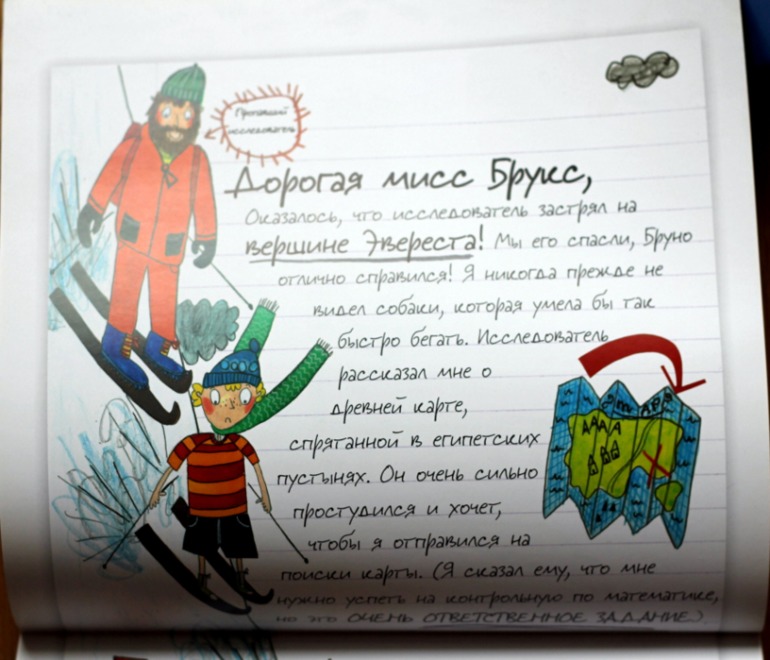 Пропавший
исследователь
Дорогая мисс Брукс,
Оказалось, что исследователь застрял на
вершине Эвереста! Мы его спасли, Бруно
отлично справился! Я никогда прежде не
видел собаки, которая умела бы так
быстро бегать. Исследователь
рассказал мне о
древней карте,
спрятанной в египетских
пустынях. Он очень сильно
простудился и хочет,
чтобы я отправился на
поиски карты. (Я сказал ему, что мне
нужно успеть на контрольную по математике,
но это ОЧЕНЬ ОТВЕТСТВЕННОЕ ЗАДАНИЕ).